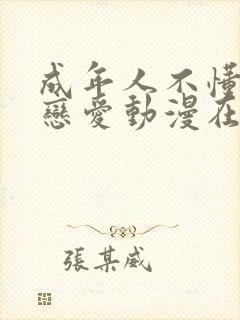 成年人不懂
戀愛動漫在
張某威